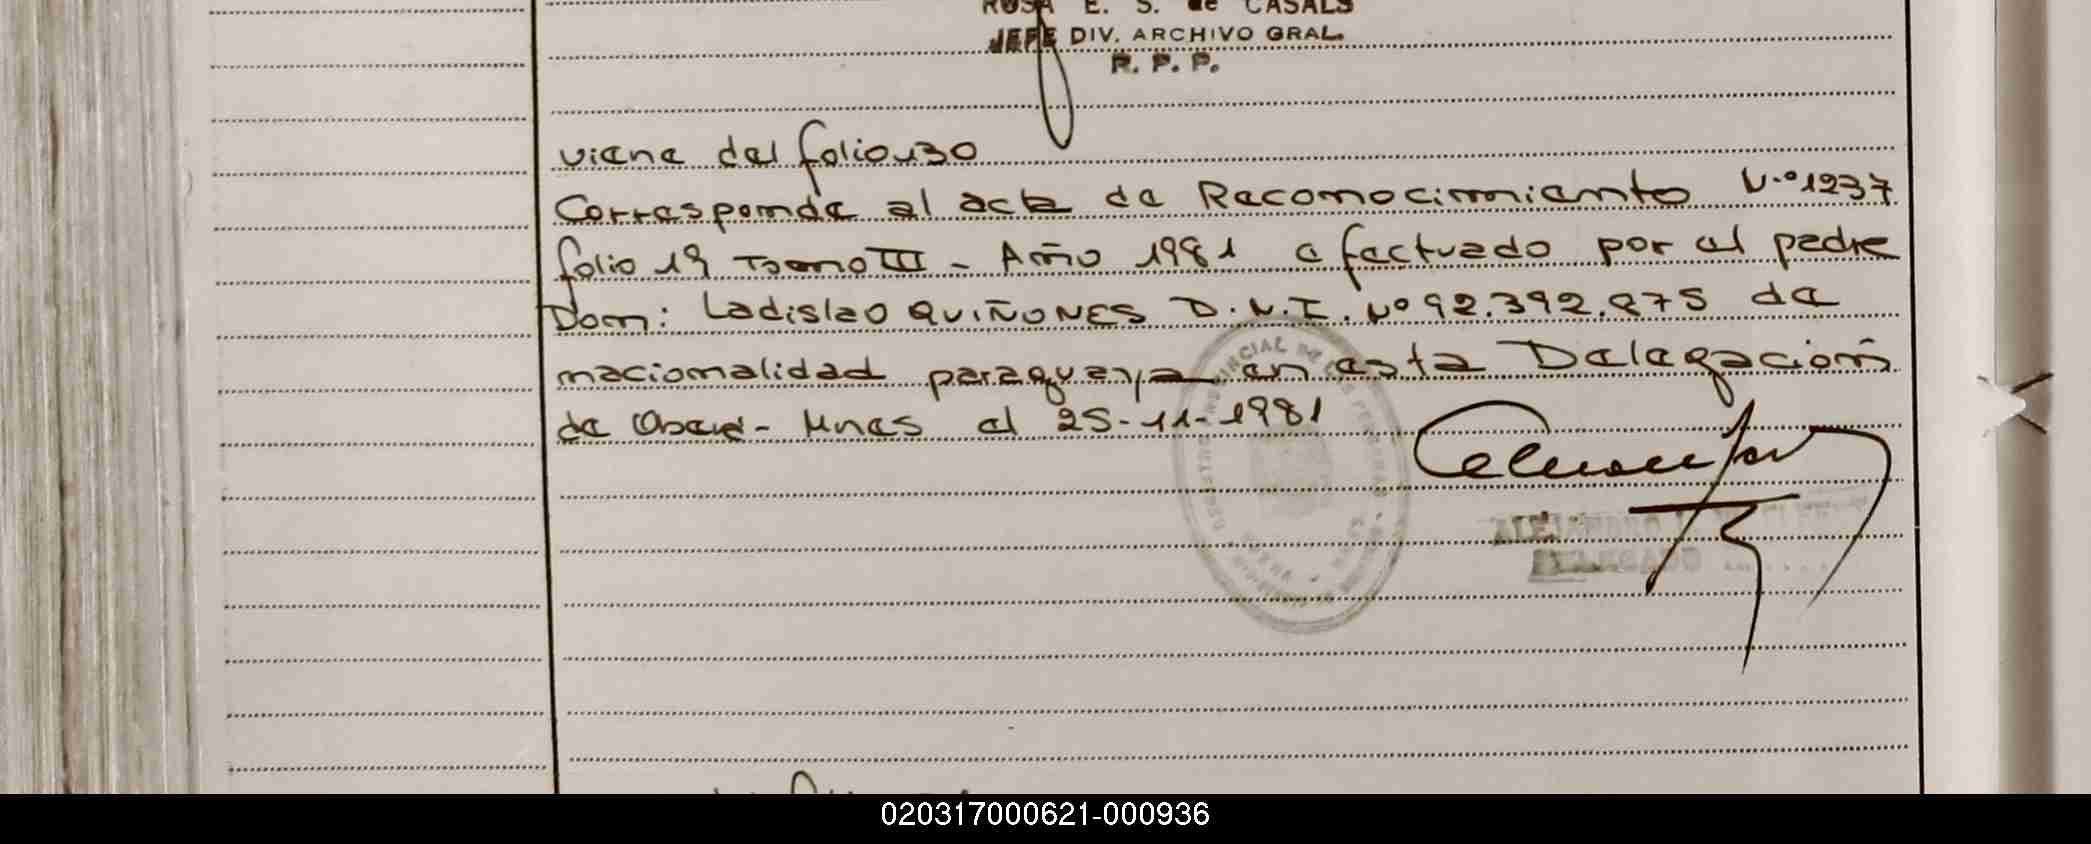 ROSA E. S. de CASALS
JEFE DIV. ARCHIVO GRAL.
R. P. P.
viene del folio 130
Corresponde al acta de Reconocimiento N.º 1237
folio 19 Tomo III - Año 1981 efectuado por el padre
Don: Ladislao QUIÑONES D.N.I. Nº 92.392.875 de
nacionalidad paraguaya en esta Delegación
de Oberá - Mnes el 25-11-1981
020317000621-000936